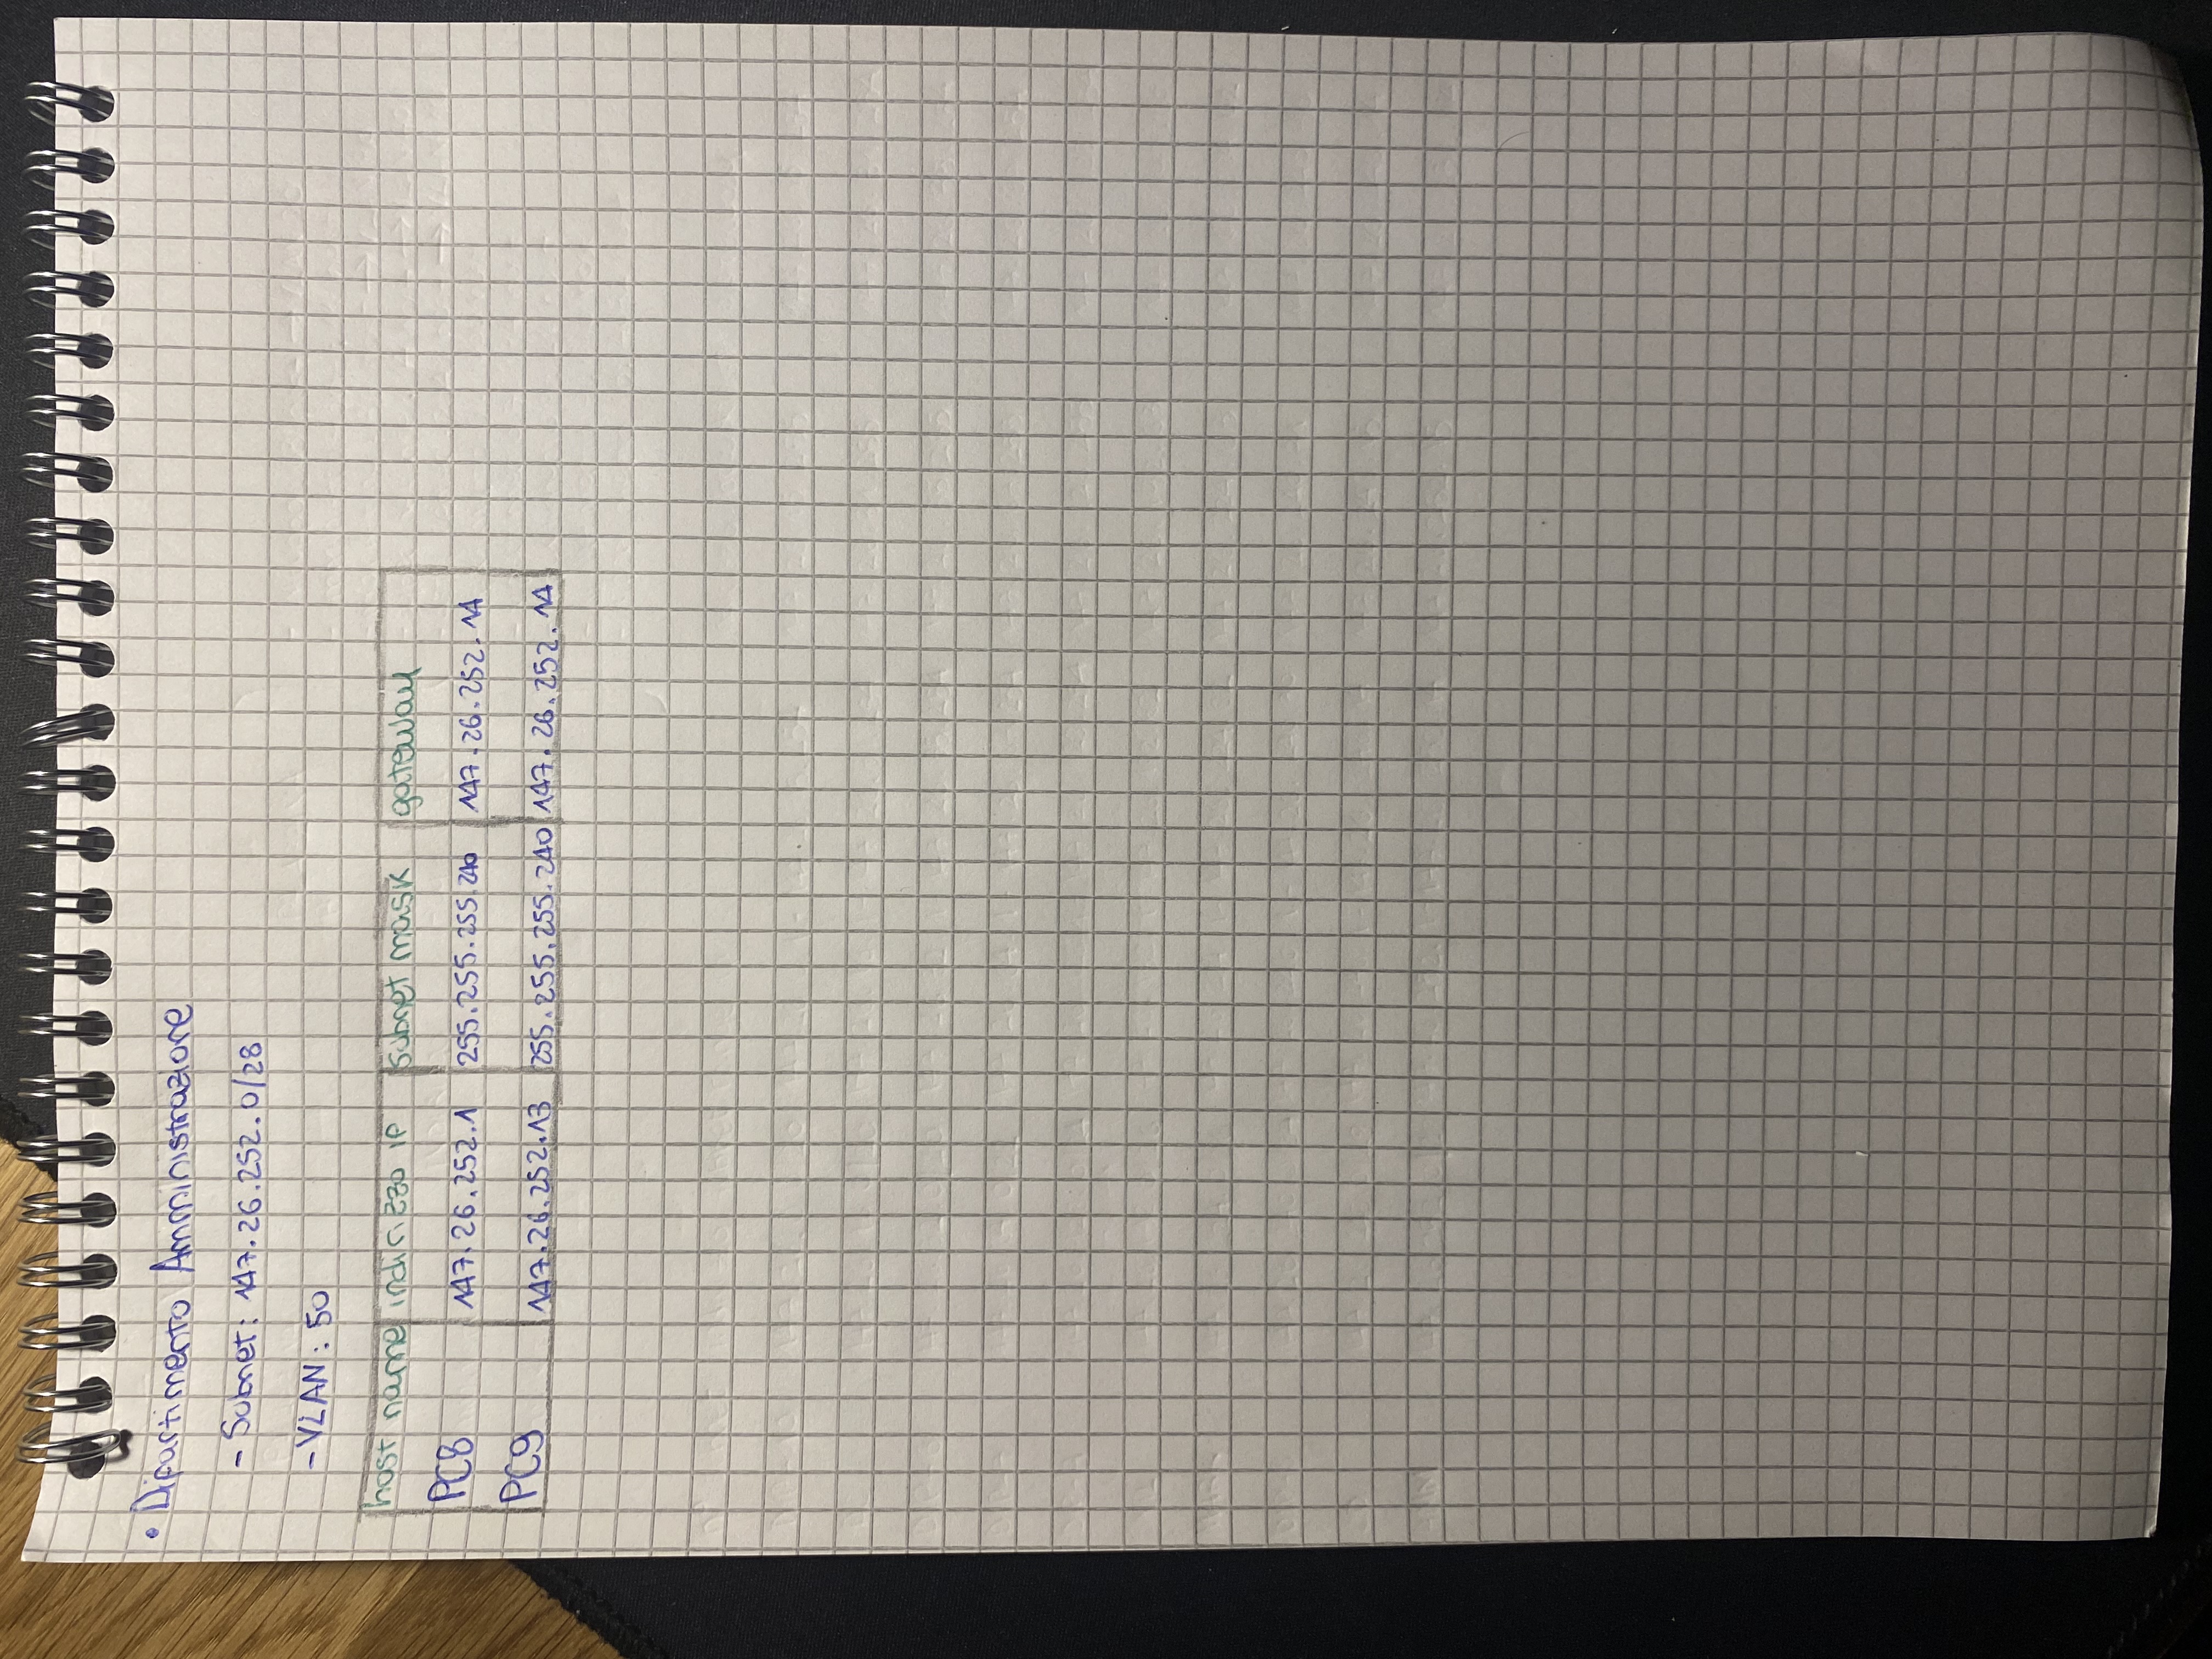 • Dipartimento Amministrazione
- Subnet: 147.26.252.0/28
- VLAN: 50
host name indirizzo IP subnet mask gateway
PC8 147.26.252.1 255.255.255.240 147.26.252.14
PC9 147.26.252.13 255.255.255.240 147.26.252.14